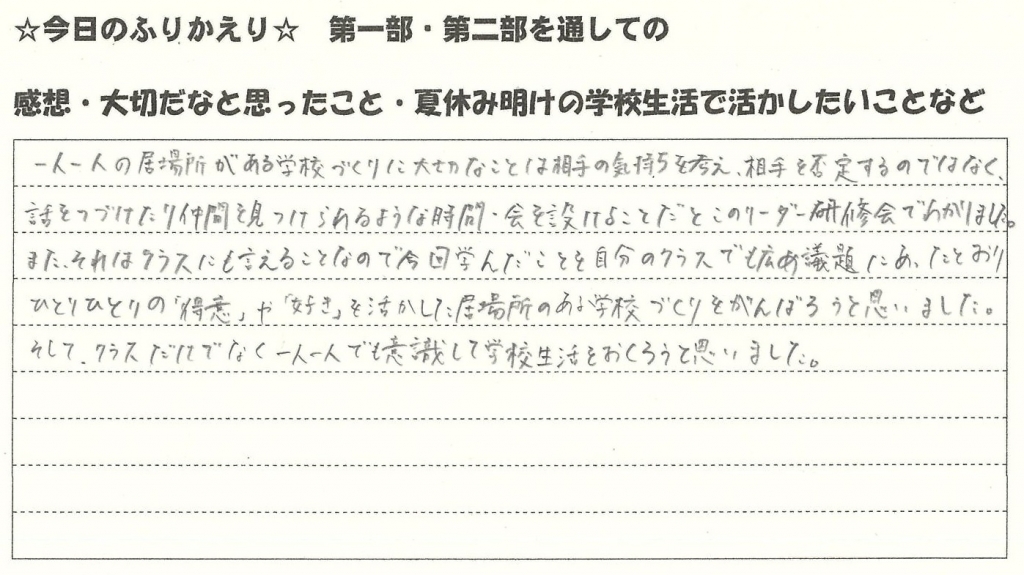 ☆今日のふりかえり☆　第一部・第二部を通しての
感想・大切だなと思ったこと・夏休み明けの学校生活で活かしたいことなど
一人一人の居場所がある学校づくりに大切なことは相手の気持ちを考え、相手を否定するのではなく、
話をつづけたり仲間を見つけられるような時間・会を設けることだとこのリーダー研修会でわかりました。
また、それはクラスにも言えることなので今回学んだことを自分のクラスでも広め議題
ひとりひとりの「得意」や「好き」を活かした居場所のある学校づくりをがんばろうと思いました。
そして、クラスだけでなく一人一人でも意識して学校生活をおくろうと思いました。